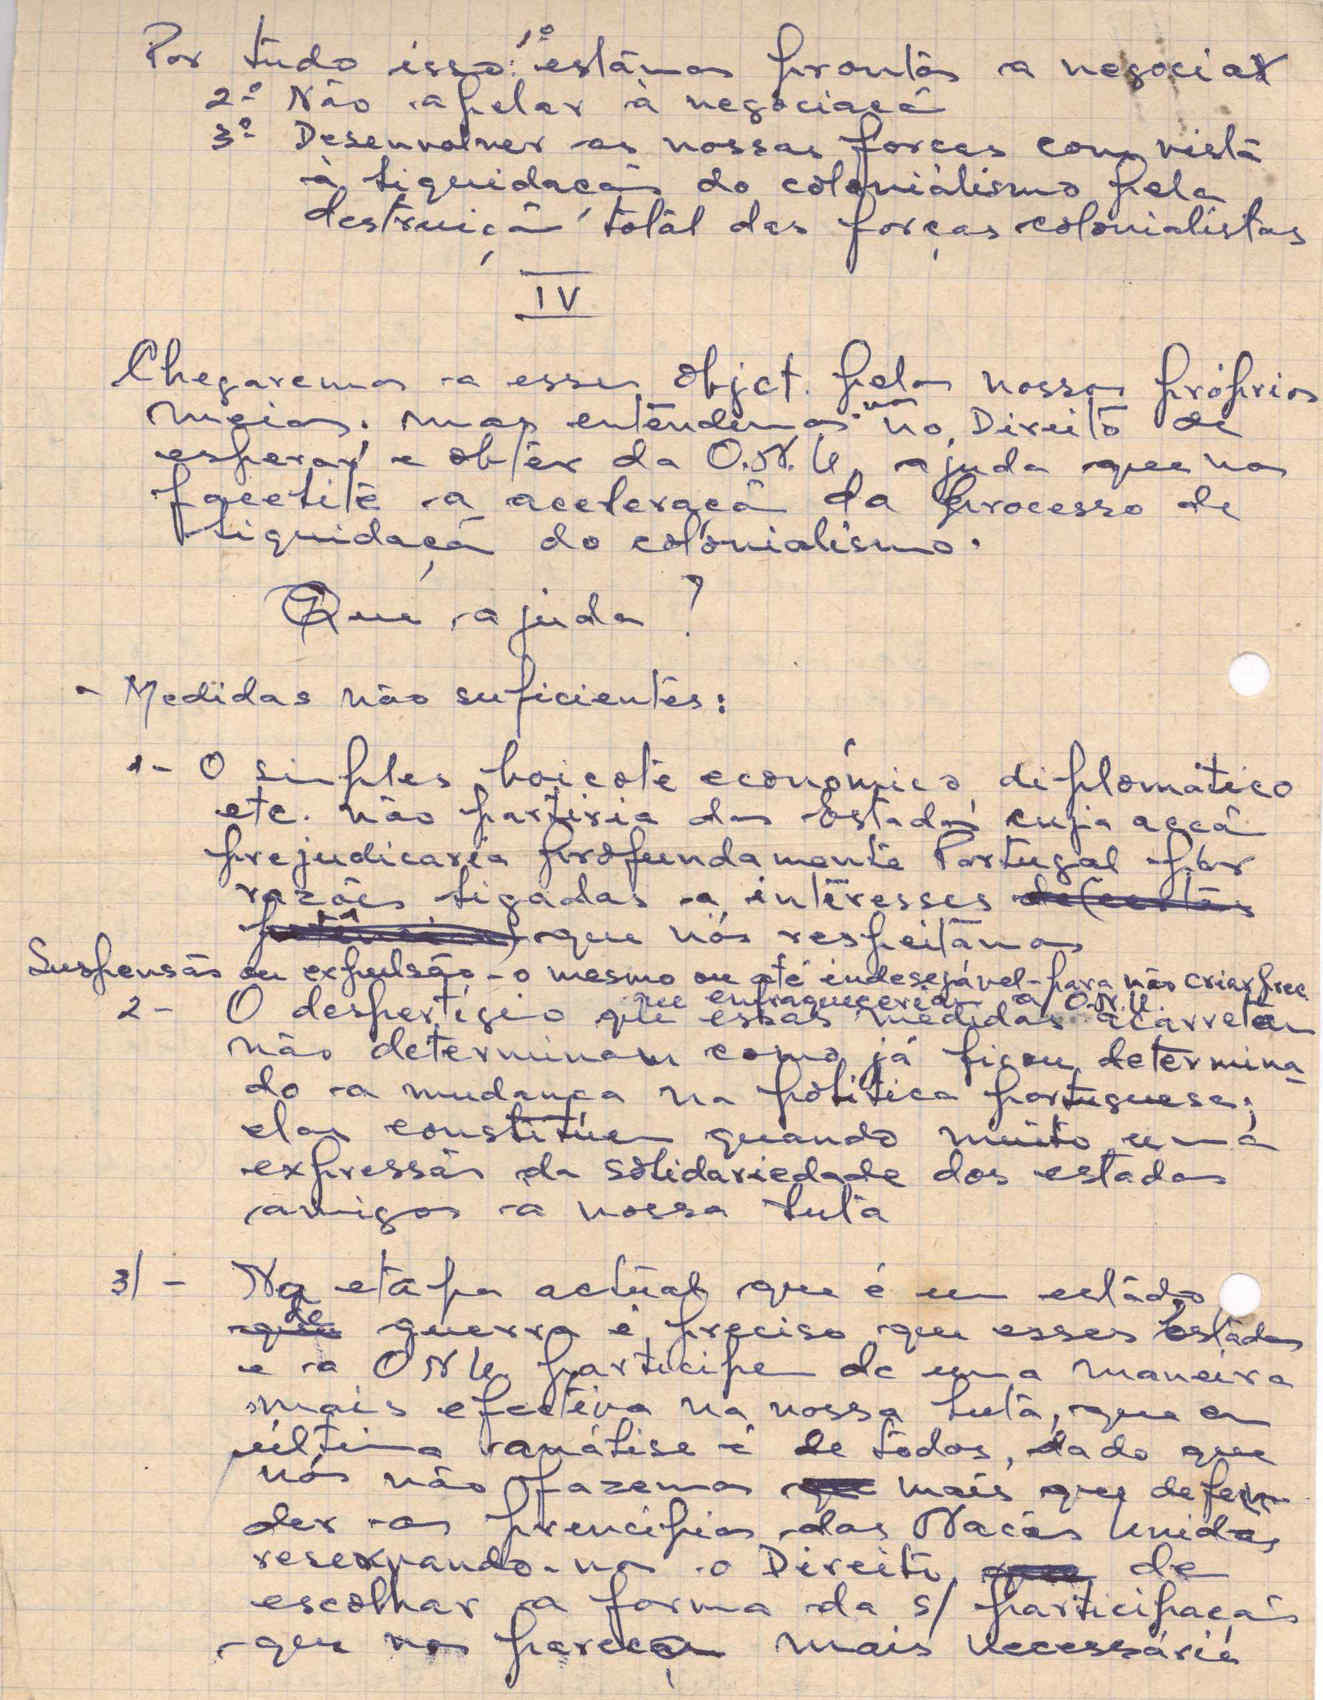 Por tudo isso: 1º estâmos prontos a negociar
2º Não apelar à negociaçã
3º Desenvolver as nossas forças com vista
à liquidaçãs do colonialismo pela
destruiçã total das forças colonialistas
IV
Chegaremos a esse object. pelos nossos próprios
meios. mas entendemos nos no Direito de
esperar e obter da O.N.U. ajuda que nos
facilite a aceleraçã da processo de
liquidaçã do colonialismo.
Que ajuda?
- Medidas não suficientes:
1- O simples boicote económico, diplomático
etc. não partiria dos Estados cuja acçã
prejudicaria profundamente Portugal por
razões ligadas a interesses
que nós respeitâmos
Suspensão ou expulsão - o mesmo ou até indesejável - para não criar prec
que enfraqueceriam a O.N.U.
2- O despertigio que essas medidas acarretam
não determinam como já ficou determina-
do a mudança na politica portuguesa;
elas constituem quando muito uma
expressãs da solidariedade dos estados
amigos a nossa luta
3/- Na etapa actual que é um estado
de guerra é preciso que esses estados
e a ONU participem de uma maneira
mais efectiva na nossa luta, que em
última análise é de todos, dado que
nós não fazemos mais que defen
der os principios das Naçães Unidas
reservando-nos o Direito de
escolhar a forma da s/ participaçãs
que nos pareça mais necessária